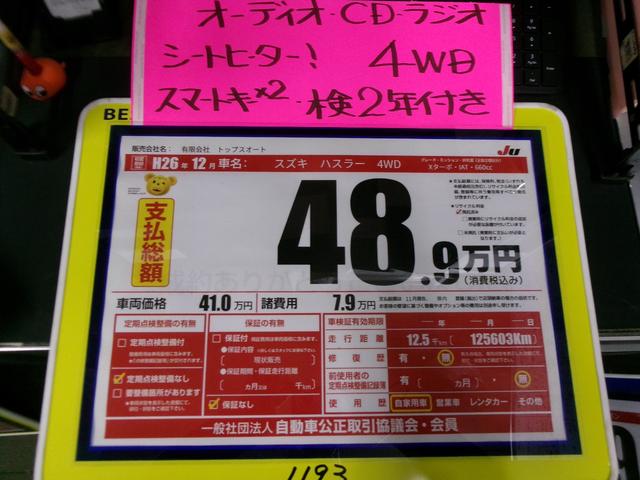 オーディオ・CD・ラジオ
シートヒーター! 4WD
スマートキー×2・検2年付き
BES
販売会社名: 有限会社 トップスオート
JU
H26年 12月 車名: スズキ ハスラー 4WD
Xターボ・IAT・660cc
支払総額
48.9万円
(消費税込み)
車両価格 41.0万円 諸費用 7.9万円
定期点検整備の有無
定期点検整備付
定期点検整備なし
要整備箇所があります
保証の有無
保証付
保証内容
現状販売
保証期間・保証走行距離
(カ月又は 千km)
保証なし
車検証有効期限 ー年ー月ー日
走行距離 12.5千km( 125603Km)
修復歴 有・無
前使用者の定期点検整備記録簿 有( カ月)・無
使用歴 自家用車 営業車 レンタカー その他
一般社団法人 自動車公正取引協議会・会員
1193